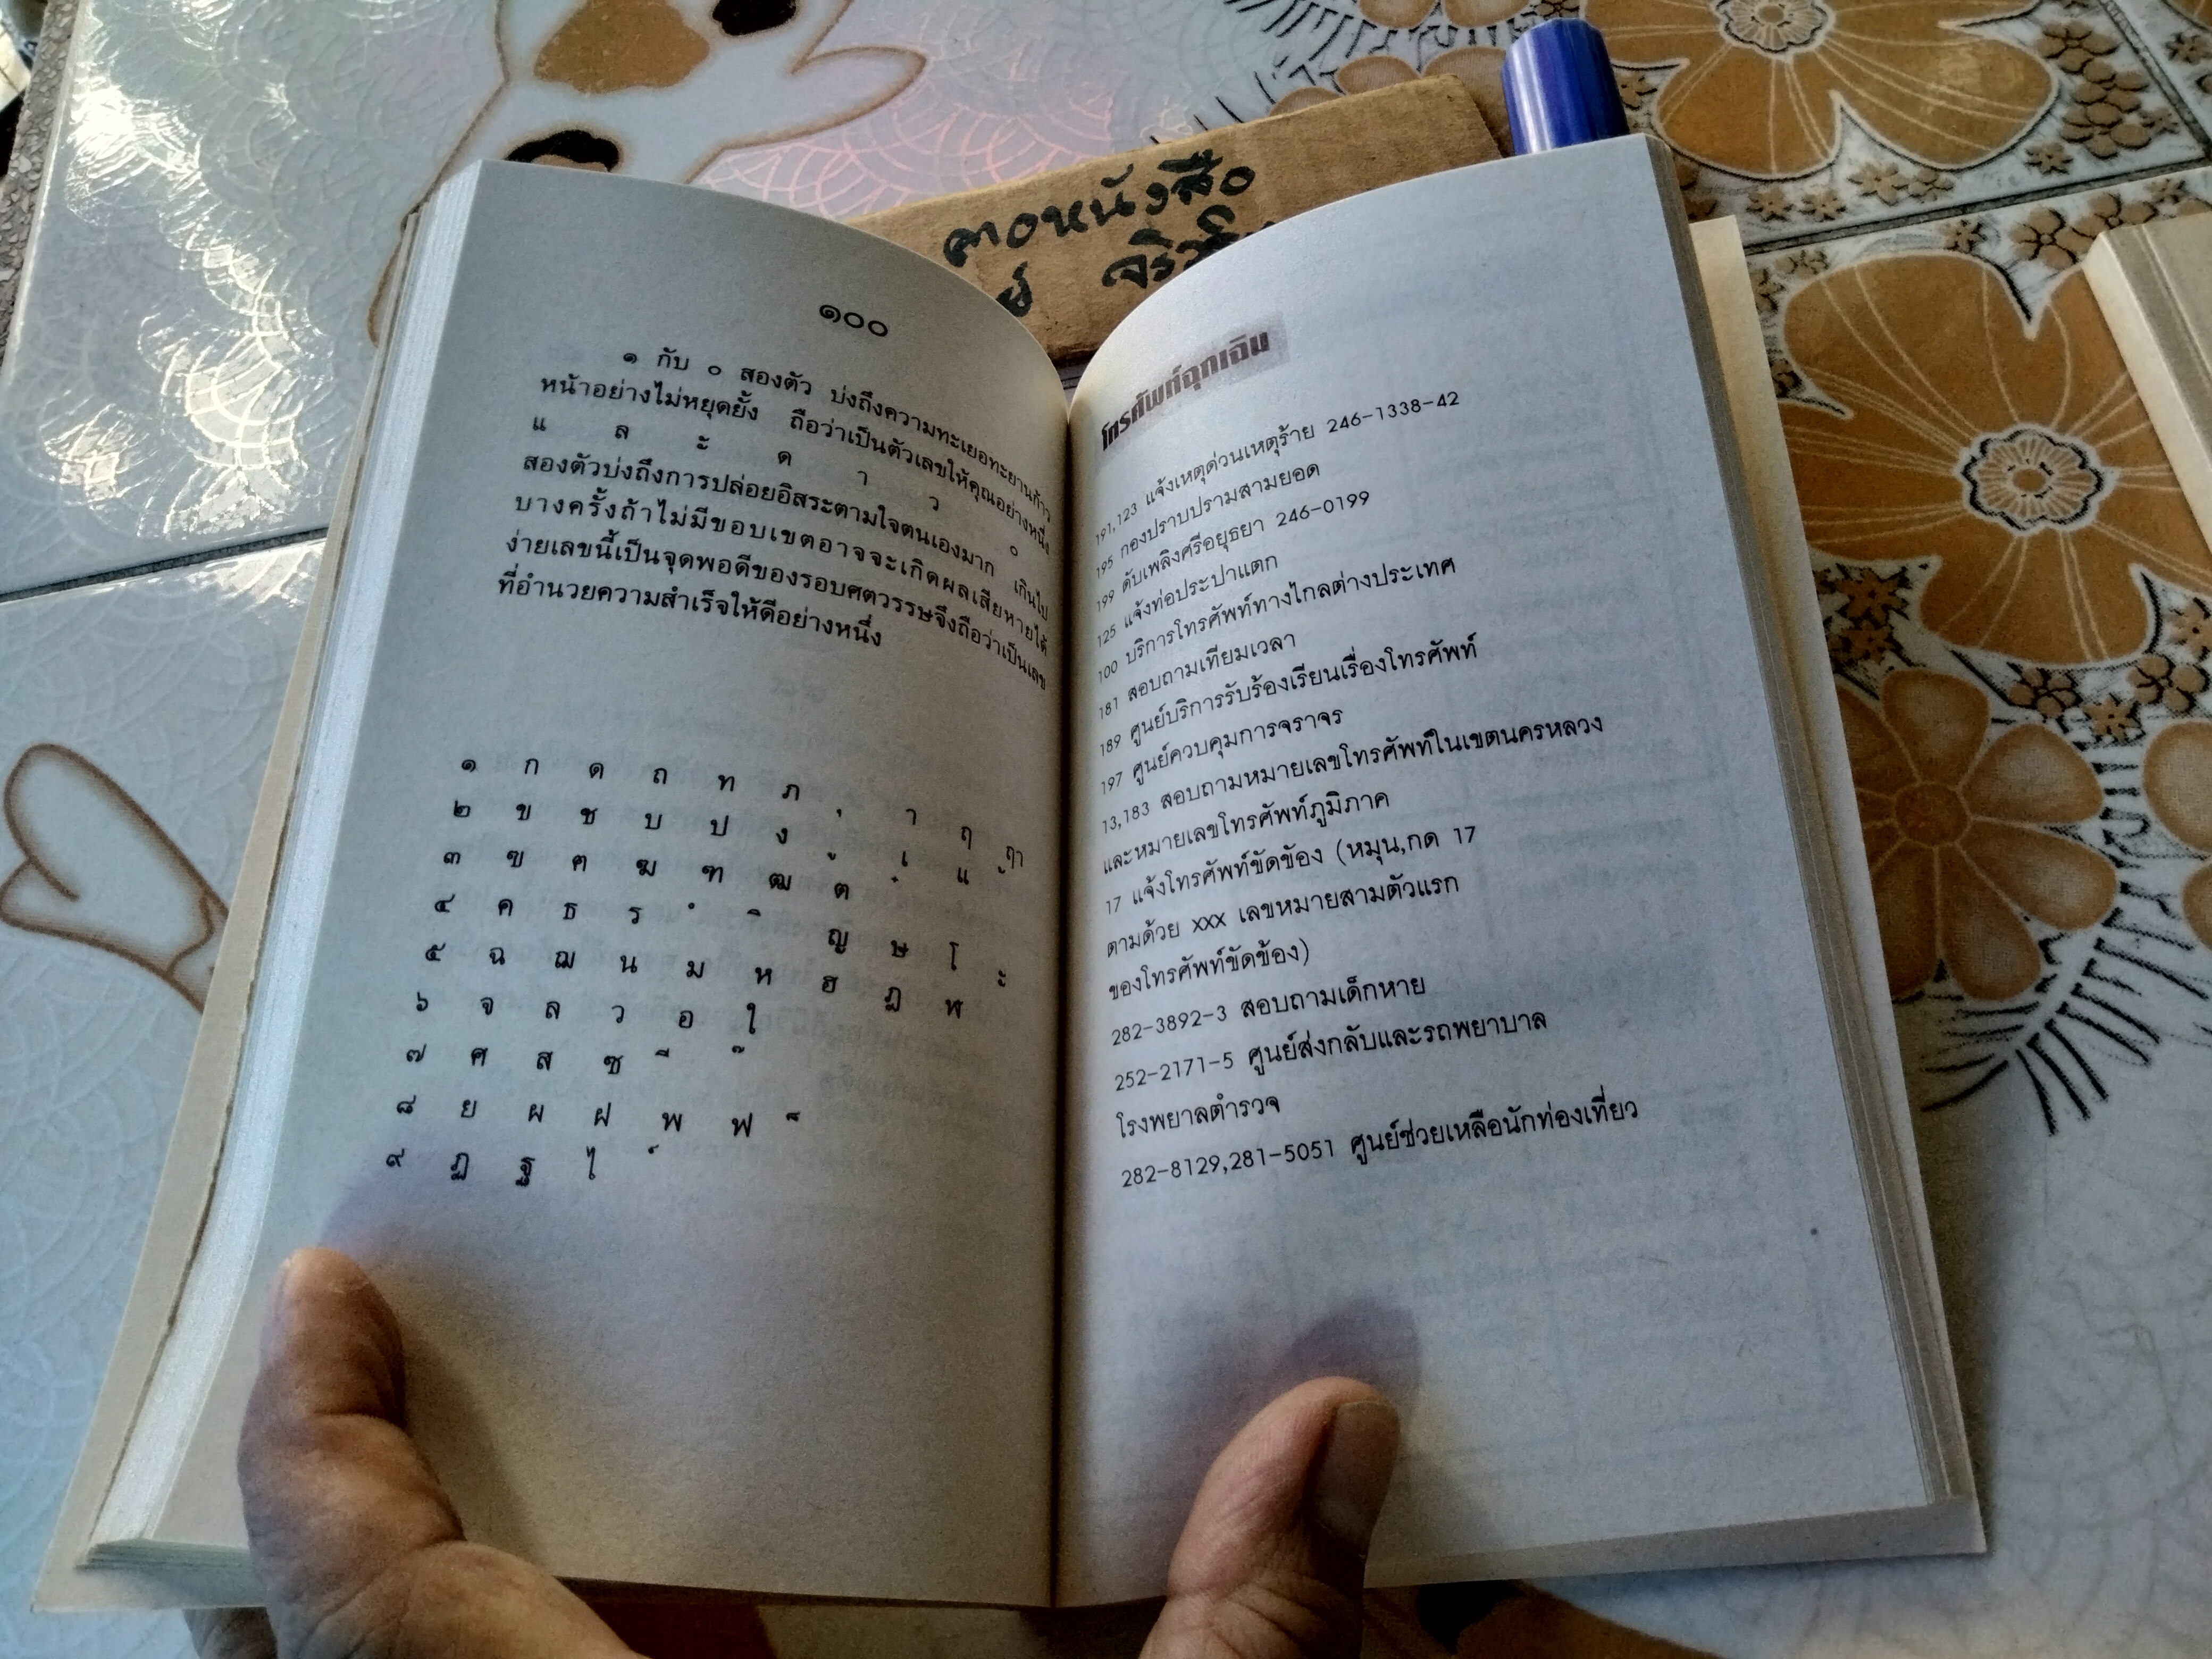 ตอหนังสือ
๑๐๐
๑ กับ ๐ สองตัว บ่งถึงความทะเยอทะยานก้าว
หน้าอย่างไม่หยุดยั้ง ถือว่าเป็นตัวเลขให้คุณอย่างหนึ่ง
แ ล ะ ด า ว ๐
สองตัวบ่งถึงการปล่อยอิสระตามใจตนเองมาก เกินไป
บางครั้งถ้าไม่มีขอบเขตอาจจะเกิดผลเสียหายได้
ง่ายเลขนี้เป็นจุดพอดีของรอบศตวรรษจึงถือว่าเป็นเลข
ที่อำนวยความสำเร็จให้ดีอย่างหนึ่ง
๑ ก ด ถ ท ภ ุ า ฤ ฤา
๒ ข ช บ ป ง ู เ แ ้
๓ ฃ ฅ ฆ ฑ ฒ ต ๋
๔ ค ธ ร ํ ิ ญ ษ โ ะ
๕ ฉ ฌ น ม ห ฮ ฎ พ
๖ จ ล ว อ ใ
๗ ศ ส ซ ี ๊
๘ ย ผ ฝ พ ฟ ็
๙ ฏ ฐ ไ ์
โทรศัพท์ฉุกเฉิน
191,123 แจ้งเหตุด่วนเหตุร้าย 246-1338-42
195 กองปราบปรามสามยอด
199 ดับเพลิงศรีอยุธยา 246-0199
125 แจ้งท่อประปาแตก
100 บริการโทรศัพท์ทางไกลต่างประเทศ
181 สอบถามเทียมเวลา
189 ศูนย์บริการรับร้องเรียนเรื่องโทรศัพท์
197 ศูนย์ควบคุมการจราจร
13,183 สอบถามหมายเลขโทรศัพท์ในเขตนครหลวง
และหมายเลขโทรศัพท์ภูมิภาค
17 แจ้งโทรศัพท์ขัดข้อง (หมุน,กด 17
ตามด้วย xxx เลขหมายสามตัวแรก
ของโทรศัพท์ขัดข้อง)
282-3892-3 สอบถามเด็กหาย
252-2171-5 ศูนย์ส่งกลับและรถพยาบาล
โรงพยาลตำรวจ
282-8129,281-5051 ศูนย์ช่วยเหลือนักท่องเที่ยว